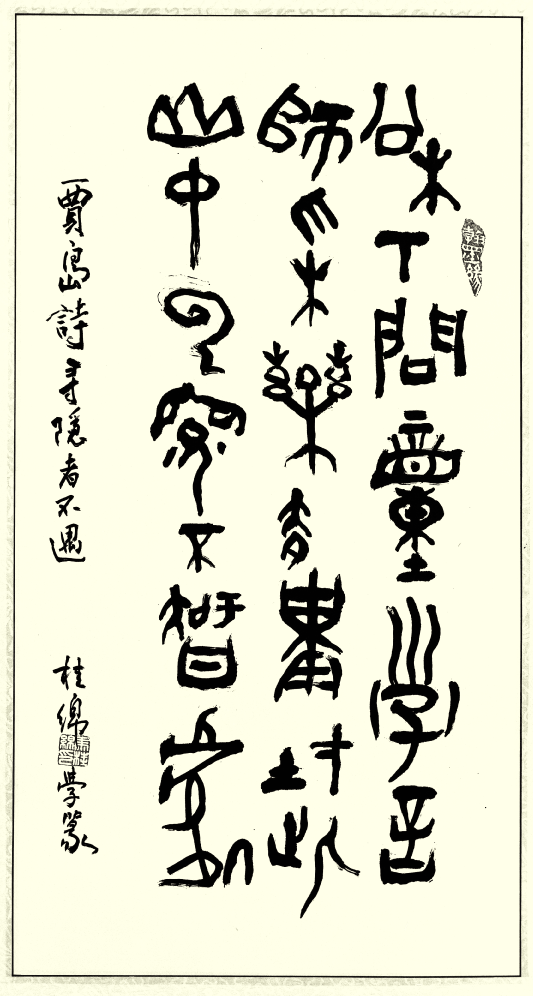 松下問童子言
師采藥去只在此
山中云深不智處
賈島詩尋隱者不遇
桂綿學篆